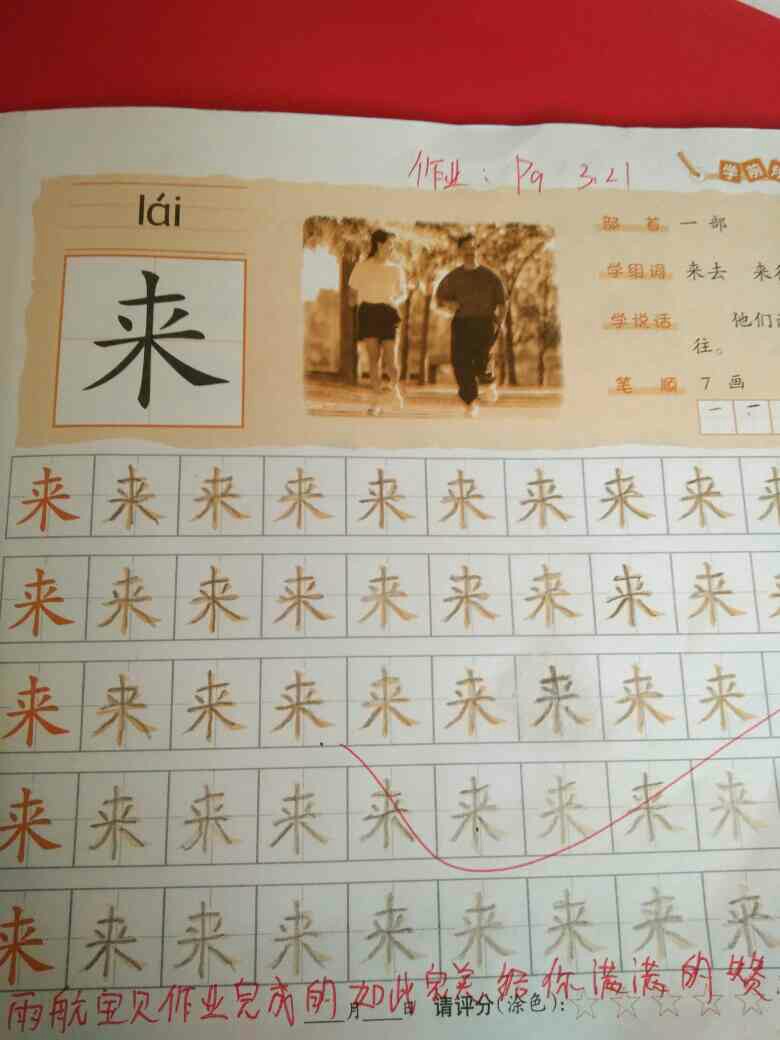 作业：P9 3.21
学前
lái
来
部首 一部
学组词 来去 来往
学说话 他们
往。
笔顺 7画
一 一
来 来 来 来 来 来 来 来 来 来
来 来 来 来 来 来 来 来 来 来
来 来 来 来 来 来 来 来 来 来
来 来 来 来 来 来 来 来 来 来
来 来 来 来 来 来 来 来 来
雨航宝贝作业完成的如此完美，给你满满的赞
月 日 请评分(涂色)：☆☆☆☆☆